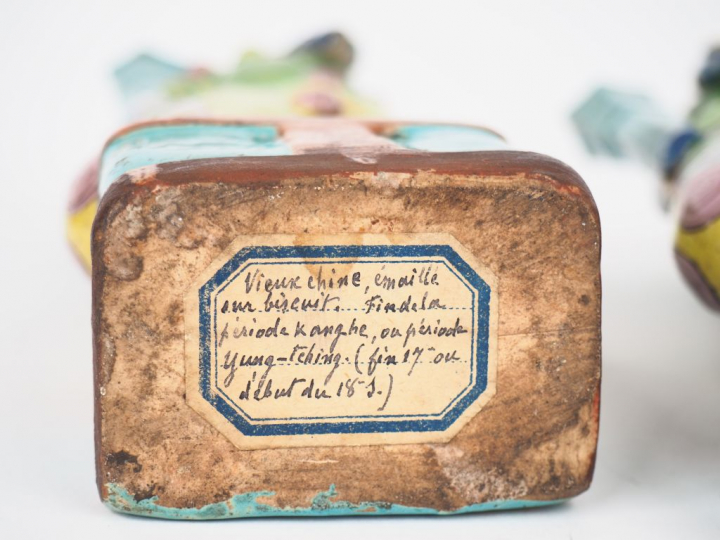 Vieux chine, émaillé
sur biscuit. Fin de la
période Kanghe, ou période
Yung-Tching. (fin 17e ou
début du 18e S.)